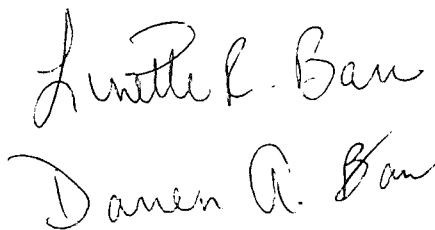 Linette R. Barr
Darren A. Barr